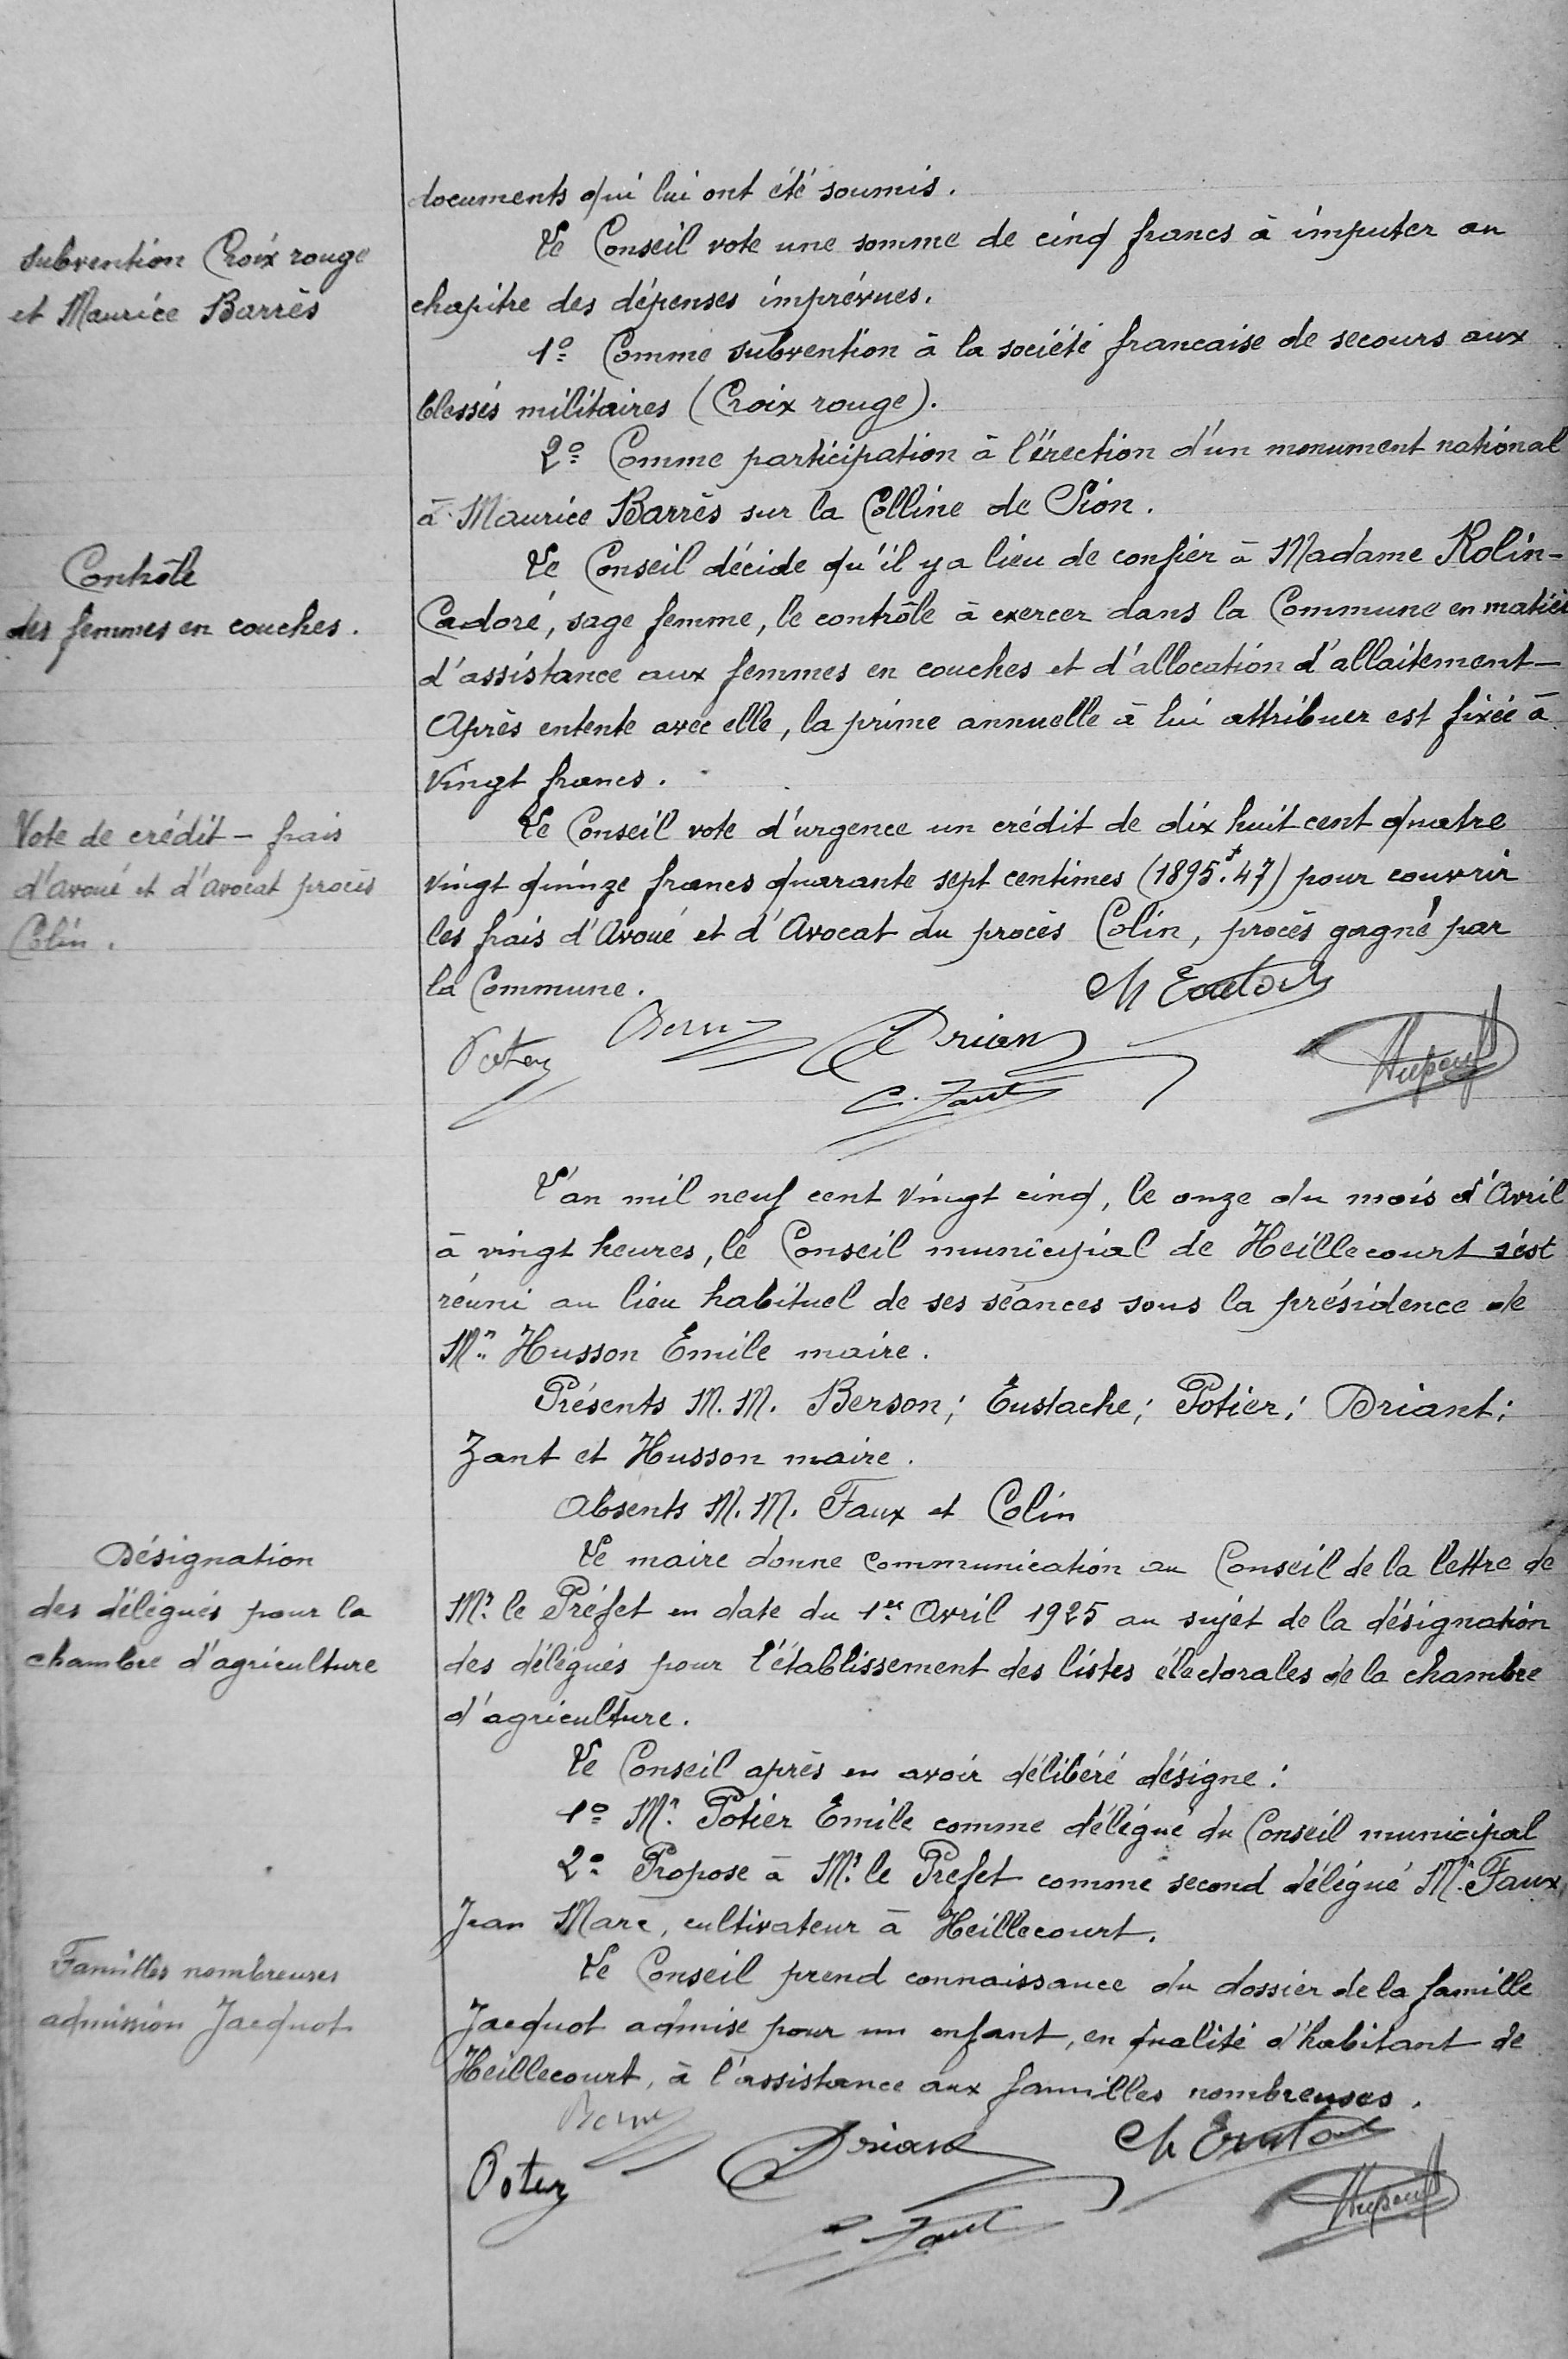 documents qui lui ont été soumis.
subvention Croix rouge
et Maurice Barrès
Le Conseil vote une somme de cinq francs à imputer au
chapitre des dépenses imprévues.
1º Comme subvention à la société francaise de secours aux
blessés militaires (Croix rouge).
2º Comme participation à l'érection d'un monument national
à Maurice Barrès sur la Colline de Sion.
Contrôle
des femmes en couches.
Le Conseil décide qu'il y a lieu de confier à Madame Rolin-
Cadoré, sage femme, le contrôle à exercer dans la Commune en matiè
d'assistance aux femmes en couches et d'allocation d'allaitement-
Après entente avec elle, la prime annuelle à lui attribuer est fixée à
vingt francs.
Vote de crédit - frais
d'avoué et d'avocat procès
Colin.
Le Conseil vote d'urgence un crédit de dix huit cent quatre
vingt quinze francs quarante sept centimes (1895f.47) pour couvrir
les frais d'Avoué et d'Avocat du procès Colin, procès gagné par
la Commune.
Driant
C. Zant
L'an mil neuf cent vingt cinq, le onze du mois d'Avril
à vingt heures, le Conseil municipal de Heillecourt s'est
réuni au lieu habituel de ses séances sous la présidence de
Mr Husson Emile maire.
Présents M.M. Berson; Eustache; Potier; Driant;
Zant et Husson maire.
Absents M.M. Faux et Colin
Désignation
des délégués pour la
chambre d'agriculture
Le maire donne communication au Conseil de la lettre de
Mr le Préfet en date du 1er Avril 1925 au sujet de la désignation
des délégués pour l'établissement des listes électorales de la chambre
d'agriculture.
Le Conseil après en avoir délibéré désigne:
1º Mr Potier Emile comme délégué du Conseil municipal
2º Propose à Mr le Prefet comme second délégué Mr Faux
Jean Marc, cultivateur à Heillecourt.
Familles nombreuses
admission Jacquot
Le Conseil prend connaissance du dossier de la famille
Jacquot admise pour un enfant, en qualité d'habitant de
Heillecourt, à l'assistance aux familles nombreuses.
Driant
Zant